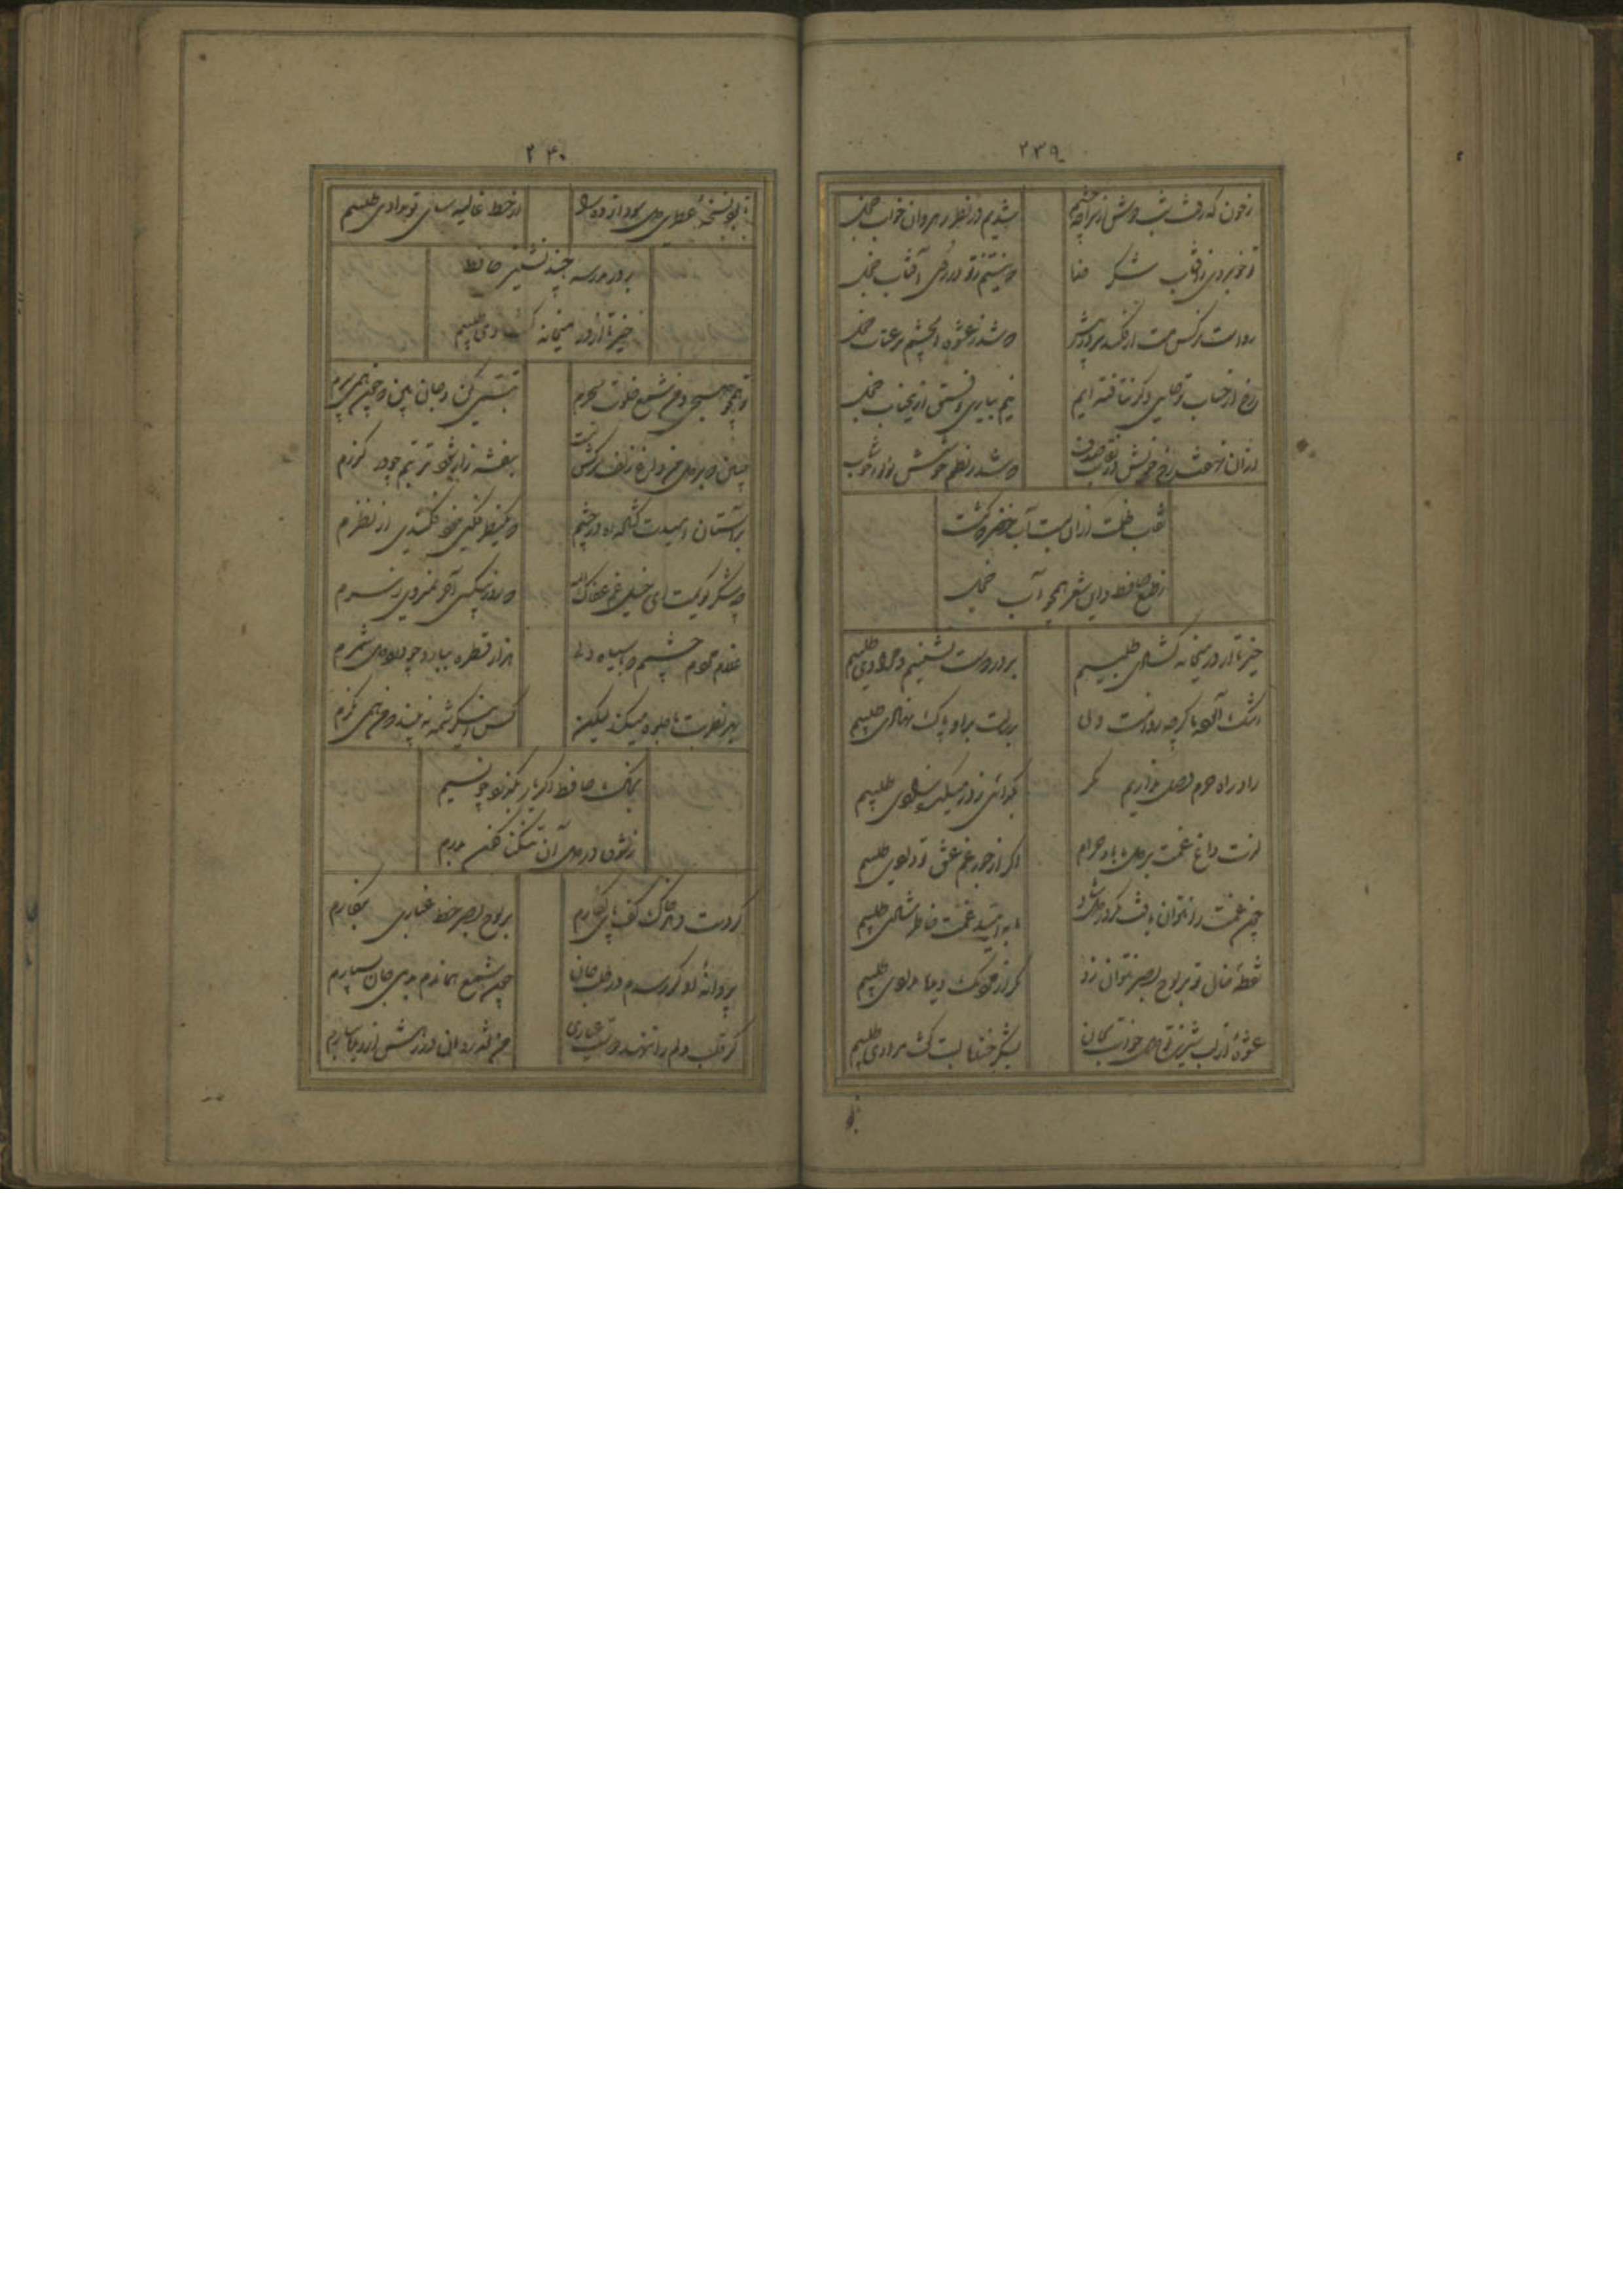 ۲۳۹
ز خون که رفت شب دوش از سراچه چشم شدیم در نظر رهروان خواب خجل
تو خوبروی تری ز آفتاب شکر خدا که نیستم ز تو در روی آفتاب خجل
رواست نرگس مست ار فکند سر در پیش که شد ز عشوه آن چشم پر عتاب خجل
رخ از جناب تو عمریست تا نتافته ایم نیم بیاری توفیق ازین جناب خجل
از آن نهفت رخ خویش در نقاب صدف که شد ز نظم خوشش لؤلؤ خوشاب خجل
حجاب ظلمت از آن بست آب خضر که گشت
ز طبع حافظ و این شعر همچو آب خجل
خیز تا از در میخانه گشادی طلبیم بر در دوست نشینیم و مرادی طلبیم
اشک آلوده ما گرچه روانست ولی برسالت بر او پاک نهادی طلبیم
زاد راه حرم وصل نداریم مگر بگدائی ز در میکده زادی طلبیم
لذت داغ غمت بر دل ما باد حرام اگر از جور غم عشق تو دادی طلبیم
چون غمت را نتوان یافت مگر در دل شاد ما به امید غمت خاطر شادی طلبیم
نقطه خال تو بر لوح بصر نتوان زد مگر از مردمک دیده مدادی طلبیم
عشوه از لب شیرین تو دل خواست بجان بشکر خنده لبت گفت مرادی طلبیم
۲۴۰
تا بود نسخه عطری دل سودازده را از خط غالیه سای تو سوادی طلبیم
بر در مدرسه چند نشینی حافظ
خیز تا از در میخانه گشادی طلبیم
تو همچو صبحی و من شمع خلوت سحرم تبسمی کن و جان بین که چون همی سپرم
چنین که در دل من داغ زلف سرکش تست بنفشه زار شود تربتم چو در گذرم
بر آستان امیدت گشاده ام در چشم که یک نظر فکنی خود فکندی از نظرم
چه شکر گویمت ای خیل غم عفاک الله که روز بیکسی آخر نمیروی ز سرم
غلام مردم چشمم که با سیاه دلی هزار قطره ببارد چو درد دل شمرم
بهر نظر بت ما جلوه میکند لیکن کس این کرشمه نه بیند که من همی نگرم
بخاک حافظ اگر یار بگذرد چو نسیم
ز شوق در دل آن تنگنا کفن بدرم
گر دست دهد خاک کف پای نگارم بر لوح بصر خط غباری بنگارم
پروانه او گر رسدم در طلب جان چون شمع همان دم بدمی جان سپارم
گر قلب دلم را ننهد دوست عیاری من نقد روان در دمش از دیده بیارم